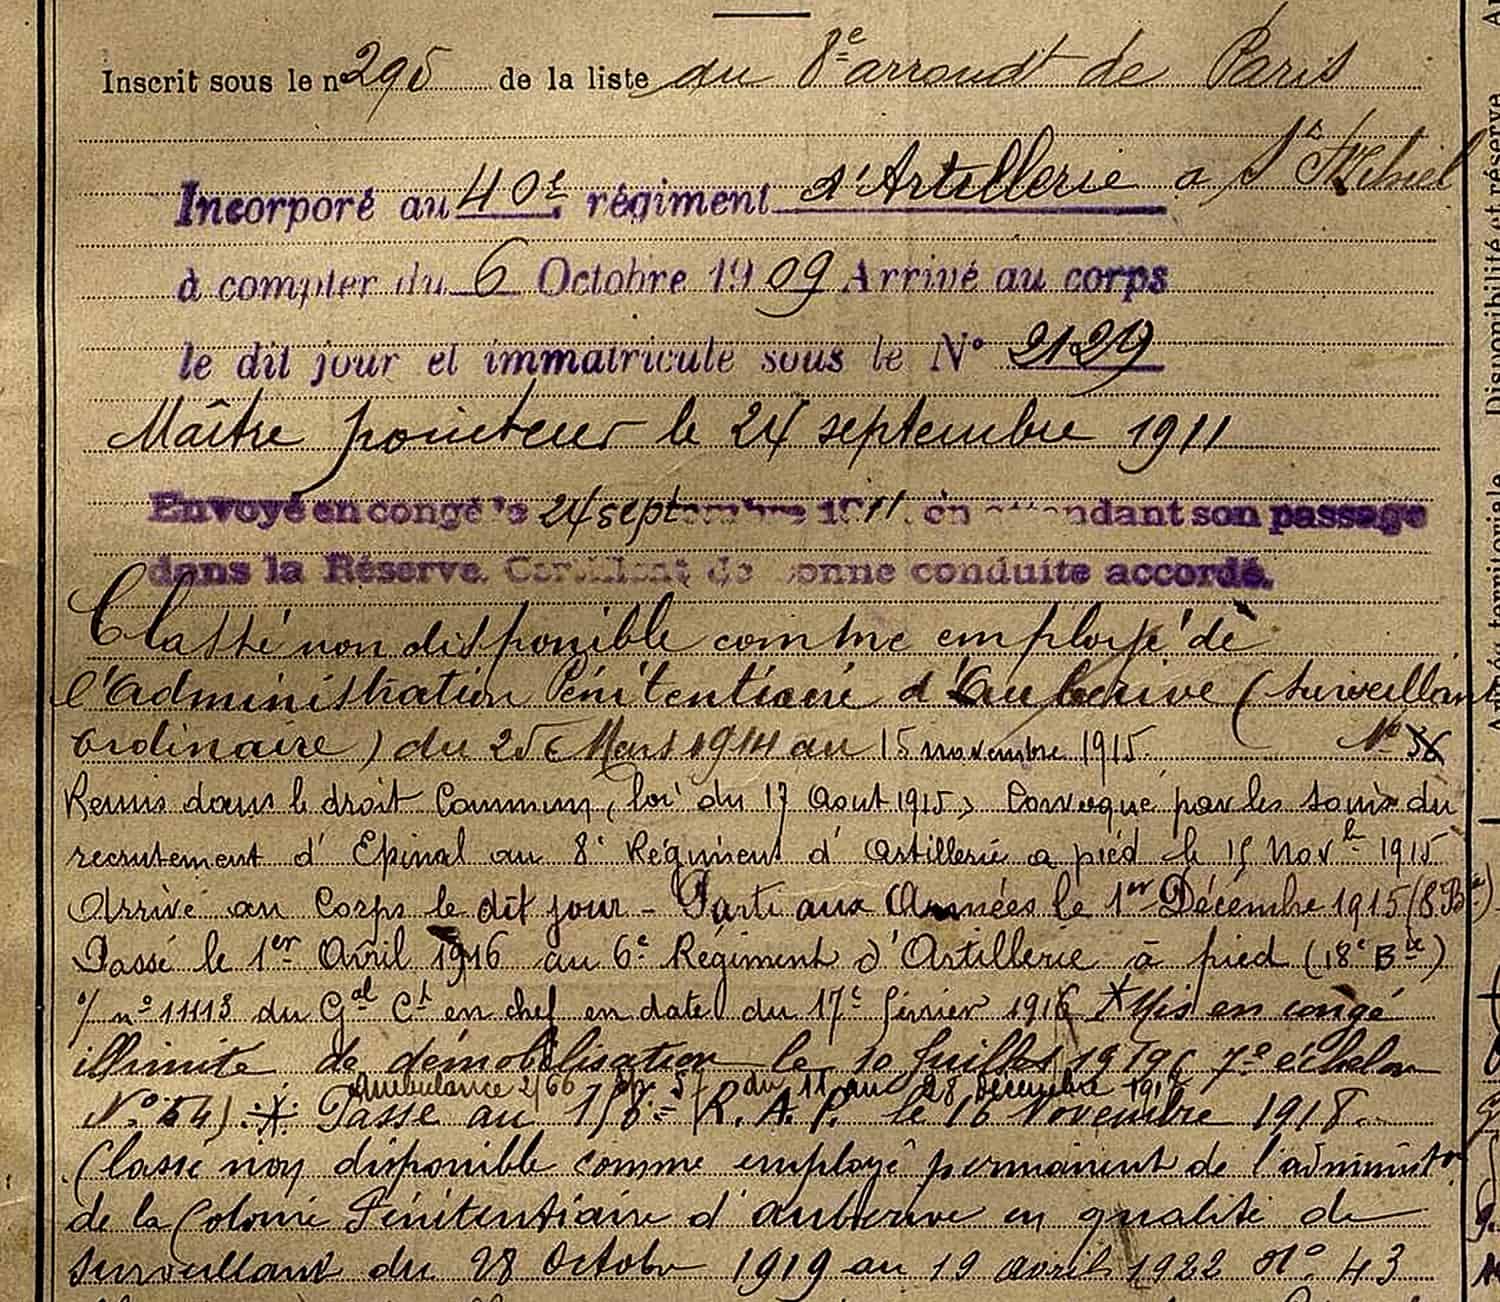 Inscrit sous le n° 295 de la liste du 8e arrondt de Paris
Incorporé au 40e régiment d'Artillerie a St Mihiel
à compter du 6 Octobre 1909 Arrivé au corps
le dit jour et immatriculé sous le N° 2129
Maître pointeur le 24 septembre 1911
Envoyé en congé le 24 septembre 1911 en attendant son passage
dans la Réserve. Certificat de bonne conduite accordé.
Classé non disponible comme employé de
l'Administration Pénitentiaire d'Auberive (Surveillant
ordinaire) du 25 Mars 1914 au 15 novembre 1915. N°
Remis dans le droit Commun, (loi du 17 Aout 1915) Convoqué par les soins du
recrutement d'Epinal au 8e Régiment d'Artillerie a pied le 15 Novbre 1915
Arrivé au Corps le dit jour - Parti aux Armées le 1er Décembre 1915 (8 Bie)
Passé le 1er Avril 1916 au 6e Régiment d'Artillerie à pied (18e Bie)
n° 11113 du Gal Ct en chef en date du 17e février 1916 * Mis en congé
illimité de démobilisation le 10 Juillet 1919 (7e échelon
Ambulance 2/66 du 11 au 28 Décembre
N° 54) * Passé au R. A. P. le 16 Novembre 1918.
Classé non disponible comme employé permanent de l'administon
de la Colonie Pénitentiaire d'auberive en qualité de
surveillant du 28 Octobre 1919 au 19 avril 1922 N° 43
Disponibilité et réserve
Armée territoriale